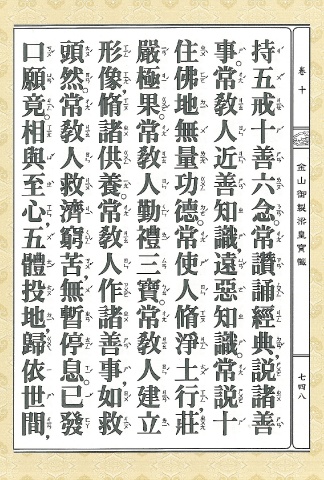 卷十
金山御製梁皇寶懺
七四八
持五戒十善六念。常讚誦經典，說諸善
事。常敎人近善知識，遠惡知識。常說十
住佛地無量功德。常使人脩淨土行，莊
嚴極果。常敎人勤禮三寶。常敎人建立
形像，脩諸供養。常敎人作諸善事，如救
頭然。常敎人救濟窮苦，無暫停息。已發
口願竟。相與至心，五體投地，歸依世間，